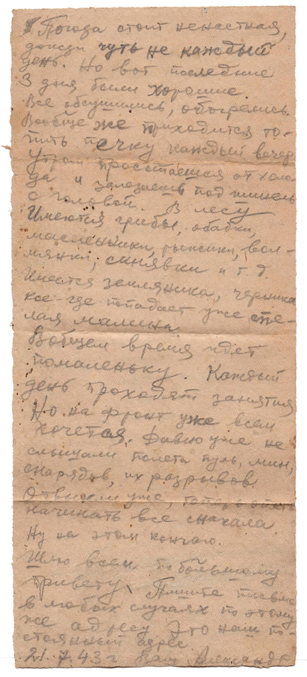 Погода стоит ненастная,
дожди чуть не каждый
день. Но вот последние
3 дня были хорошие.
Все обсушились, обогрелись.
Вообще же приходится то-
пить печку каждый вечер.
Утром просыпаешся от холо-
да и залезаешь под шинель
с головой. В лесу
Имеются грибы, обабки,
масленники, рыжики, вол-
мянки, синявки и т.д.
Имеется земляника, черника
кое-где попадает уже спе-
лая малина
Вобщем время идет
помаленьку. Каждый
день проходят занятия
Но на фронт уже всем
хочется. Давно уже не
слыхали полета пуль, мин,
снарядов, их разрывов.
Отвыкли уже, теперь
начинать все сначала
Ну на этом кончаю.
Шлю всем по большому
привету. Пишите письма
в любых случаях по этому
же адресу. Это наш по-
стоянный адрес
21.7.43 г Ваш Александр